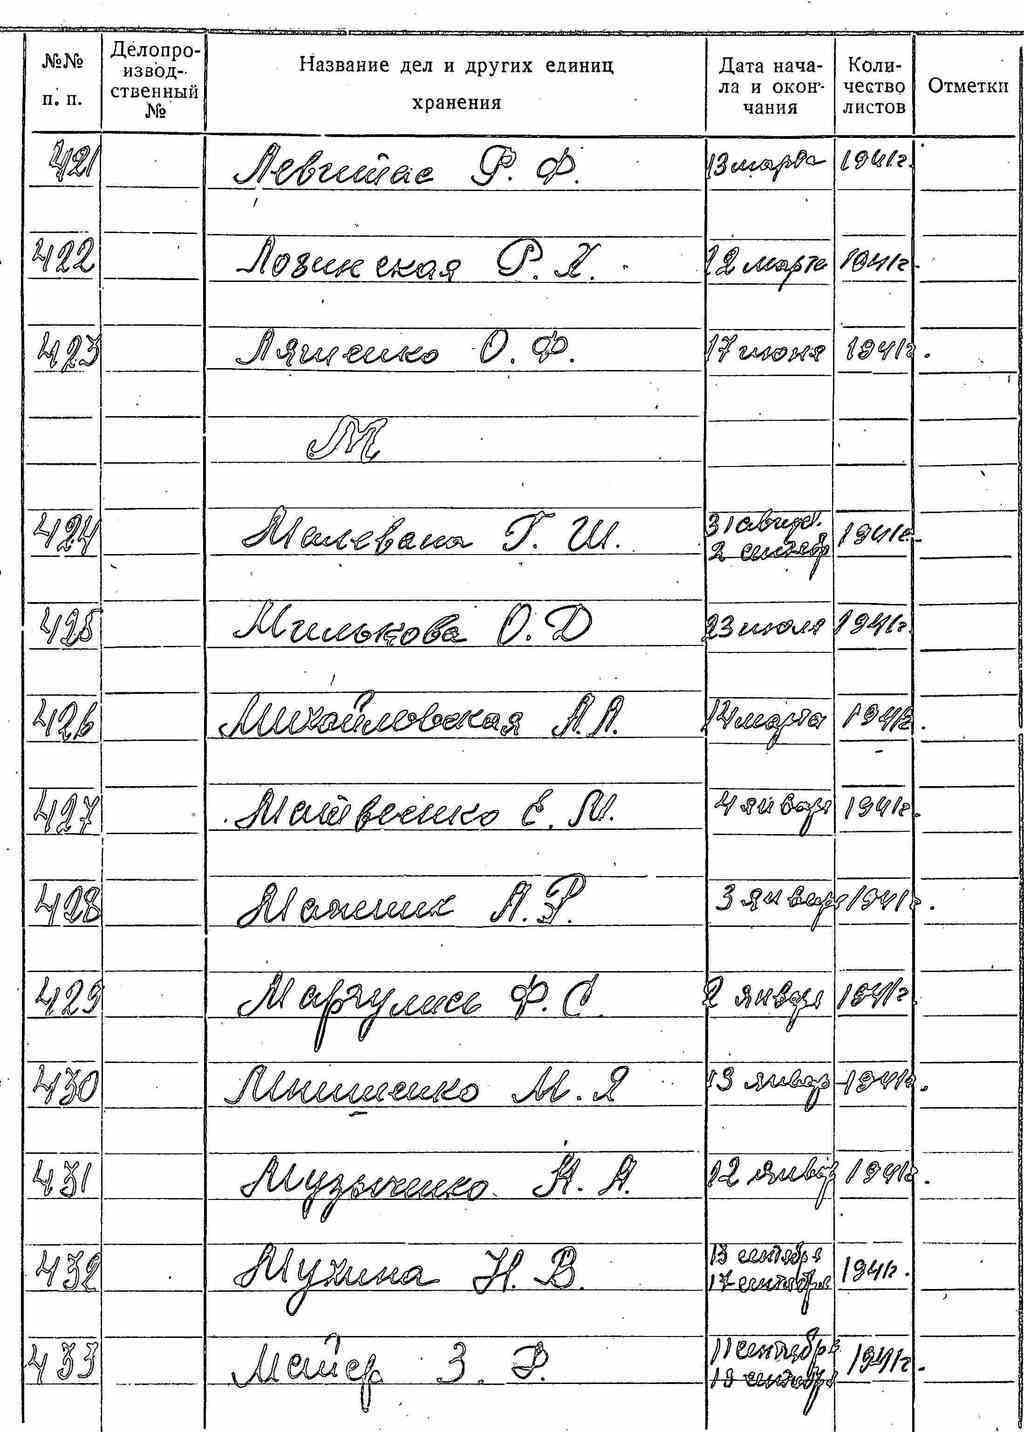 №№ п. п.
Делопроизвод-
ственный №
Название дел и других единиц
хранения
Дата нача-
ла и окон-
чания
Коли-
чество
листов
Отметки
421 Левитас Р. Ф. 13 марта 1941г.
422 Лозинская Р. Х. 22 марта 1941г.
423 Ляшенко О. Ф. 17 июня 1941г.
М
424 Малевана Г. Ш. 31 август. 2 сентябр 1941г.
425 Милькова О. Д 23 июля 1941г.
426 Михайловская А. А. 14 марта 1941г.
427 Матвеенко Е. М. 4 января 1941г.
428 А. Р. 3 января 1941г.
429 Маргулись Ф. С. 2 января 1941г.
430 М. Я 13 январ 1941г.
431 Музыченко Н. А. 12 январ 1941г.
432 Мухина Н. В. 13 сентября 17 сентября 1941г.
433 Мейер З. Р. 11 сентября сентября 1941г.